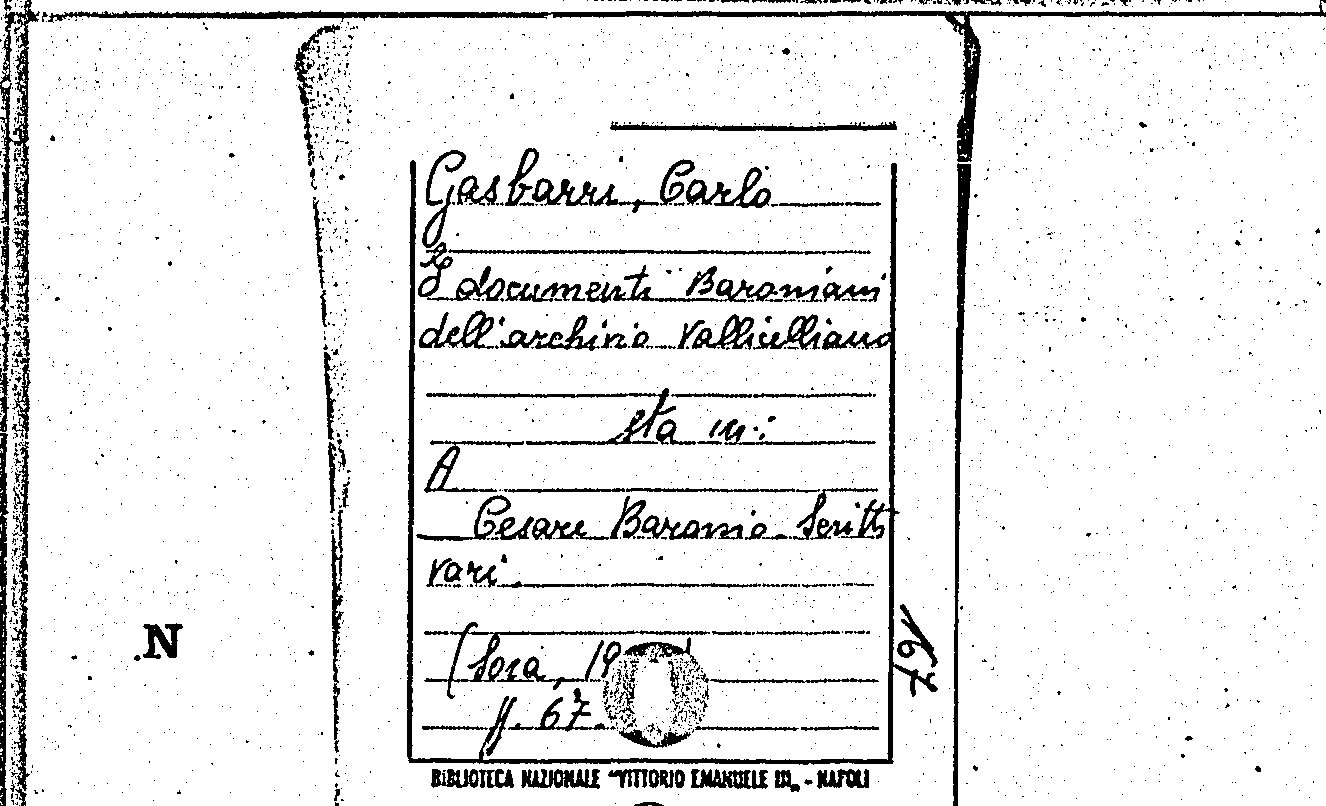 Gasbarri, Carlo
I documenti Baroniani
dell'archivio Vallicelliano
sta in:
A
Cesare Baronio. Scritti
vari.
(Sora, 19
ff. 67.
N
BIBLIOTECA NAZIONALE "VITTORIO EMANUELE III„ - NAPOLI